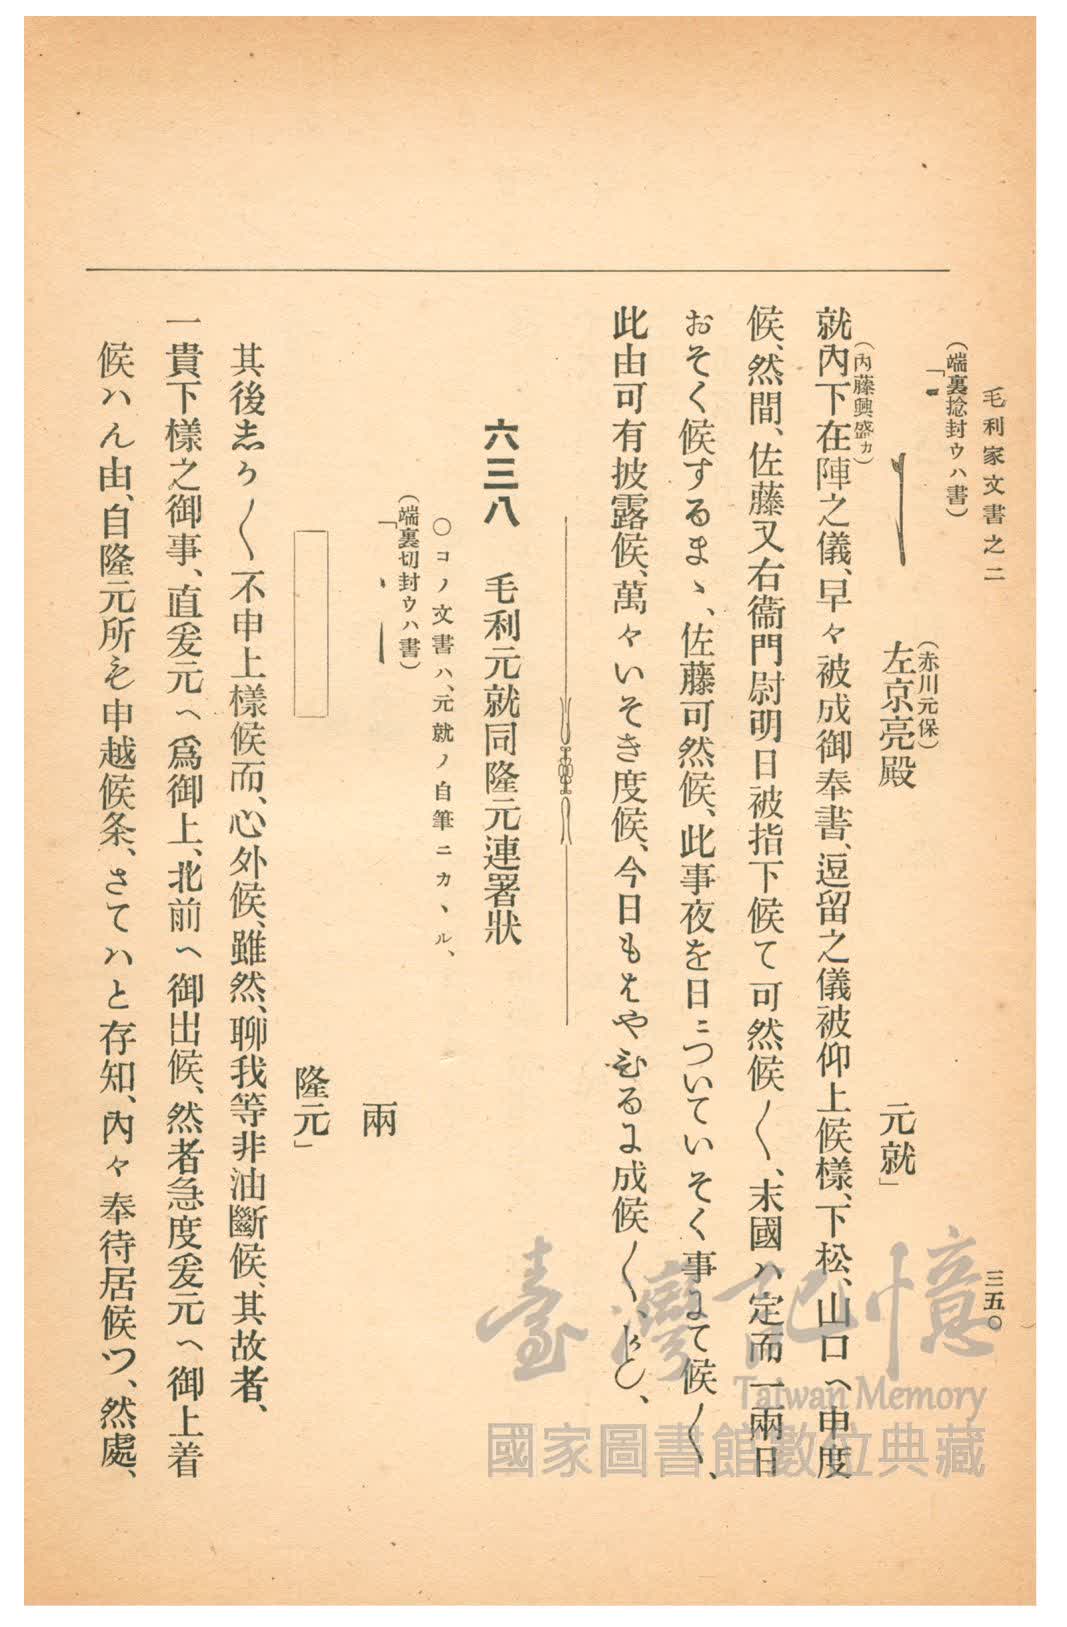 毛利家文書之二
三五〇
(端裏捻封ウハ書)
「
(赤川元保)
左京亮殿
元就」
(內藤興盛カ)
就內下在陣之儀、早々被成御奉書、逗留之儀被仰上候樣、下松、山口へ申度
候、然間、佐藤又右衞門尉明日被指下候て可然候〱、末國ハ定而一兩日
おそく候するまゝ、佐藤可然候、此事夜を日ニついていそく事にて候〱、
此由可有披露候、萬々いそき度候、今日もはやひるに成候〱、かしく、
六三八　毛利元就同隆元連署狀
〇コノ文書ハ、元就ノ自筆ニカヽル、
(端裏切封ウハ書)
「
兩
隆元」
其後志かく不申上樣候而、心外候、雖然、聊我等非油斷候、其故者、
一貴下樣之御事、直爰元へ爲御上、北前へ御出候、然者急度爰元へ御上着
候ハん由、自隆元所も申越候条、さてハと存知、內々奉待居候つ、然處、
臺灣記憶
Taiwan Memory
國家圖書館數位典藏